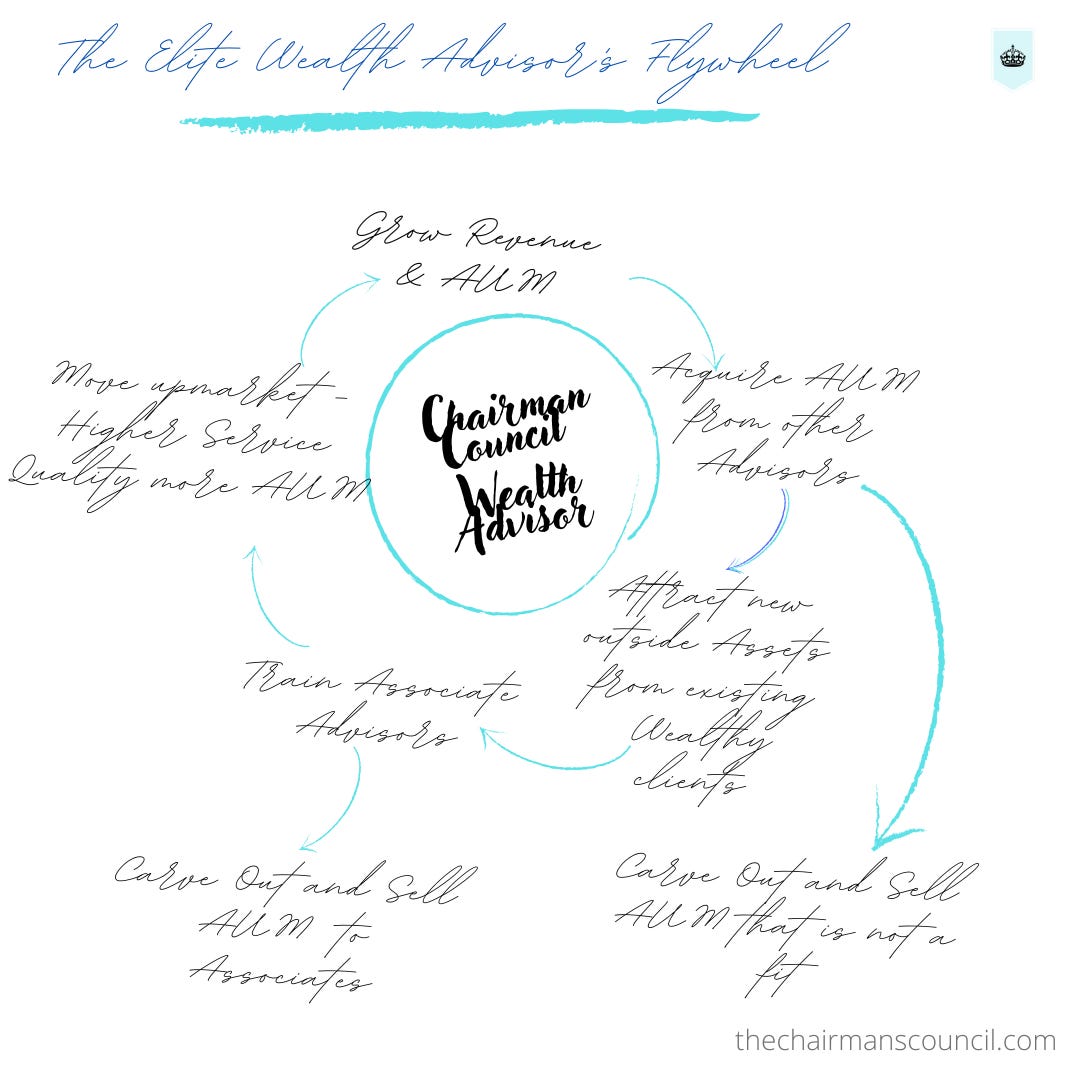 The Elite Wealth Advisor's Flywheel
Grow Revenue
& AUM
Acquire AUM
from other
Advisors
Attract new
outside Assets
from existing
Wealthy
clients
Train Associate
Advisors
Move upmarket -
Higher Service
Quality more AUM
Chairman
Council
Wealth
Advisor
Carve Out and Sell
AUM to
Associates
Carve Out and Sell
AUM that is not a
fit
thechairmanscouncil.com